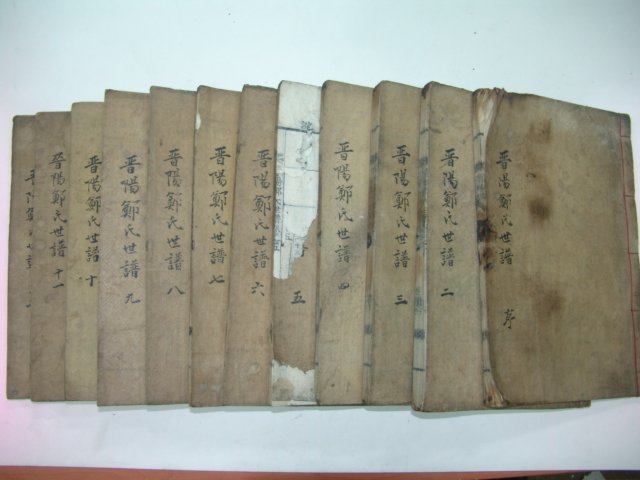 晋陽鄭氏世譜 序
晋陽鄭氏世譜 二
晋陽鄭氏世譜 三
晋陽鄭氏世譜 四
五
晋陽鄭氏世譜 六
晋陽鄭氏世譜 七
晋陽鄭氏世譜 八
晋陽鄭氏世譜 九
晋陽鄭氏世譜 十
晋陽鄭氏世譜 十一